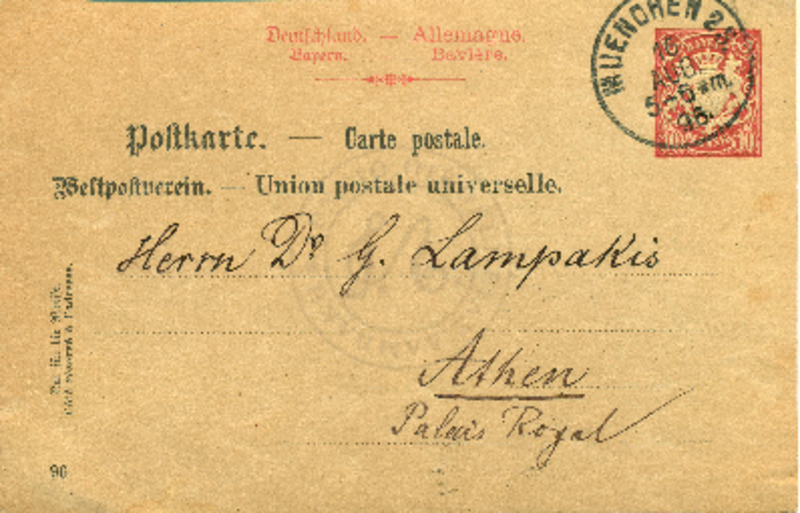 Deutschland. — Allemagne.
Bayern. Bavière.
MUENCHEN 2
AUG
96.
10
Postkarte. — Carte postale.
Weltpostverein. — Union postale universelle.
Herrn Dr G. Lampakis
Athen
Palais Royal
Côté réservé à l'adresse.
96